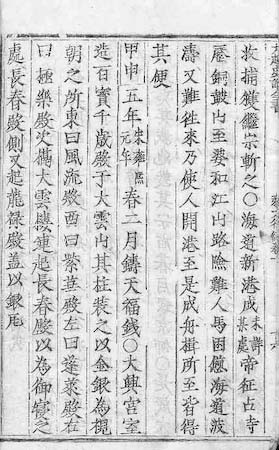 收捕獲繼宗斬之〇海道新港成未詳某處帝征占時
歷銅鼓山至婆和江山路險難人馬困憊海道波
濤又難徃來乃使人開港至是成舟楫所至皆得
其便
甲申五年宋雍熈元年春二月鑄天福錢〇大興宮室
造百寶千歲殿于大雲山其柱裝之以金銀為視
朝之所東曰風流殿西曰紫花殿左曰蓬萊殿右
曰極樂殿次搆大雲樓連起長春殿以為御寢之
處長春殿側又起龍祿殿盖以銀瓦